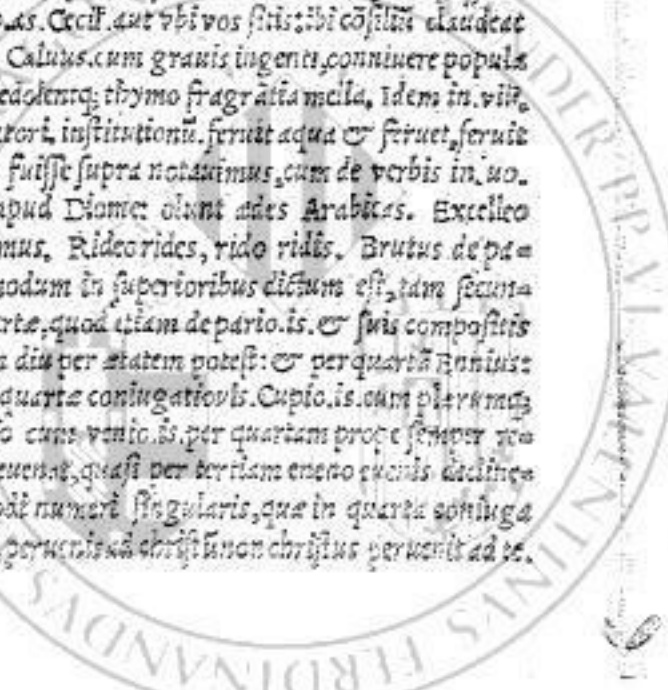 .as. Cecil. aut vbi vos sitis: ibi cõsiliũ claudeat
Caluus. cum grauis ingenti, conniuere pupula
edolentq; thymo fragrãtia mella. Idem in. viij.
tori. institutionũ. feruit aqua & feruet, feruit
fuisse supra notauimus, cum de verbis in. uo.
apud Diome: olunt ædes Arabicas. Excelleo
mus. Rideo rides, rido ridis. Brutus de pa=
modum in superioribus dictum est, tam secun=
rtæ, quod etiam de pario. is. & suis compositis
diu per ætatem potest: & per quartã Ennius:
quartæ coniugationis. Cupio. is. cum plerumq;
o cum venio. is. per quartam prope semper
euenat, quasi per tertiam eueno euenis decline=
numeri singularis, quæ in quarta coniuga
peruenis ad christũ non christus peruenit ad te.
FERDINANDVS VALENTINVS